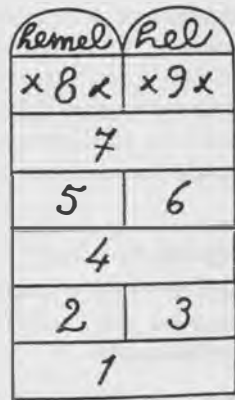 hemel hel
x 8 x x 9 x
7
5 6
4
2 3
1